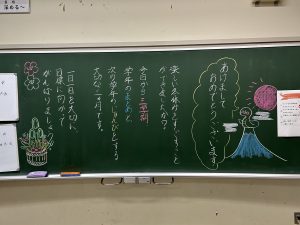 あけまして
おめでとうございます
楽しい冬休みをすごすこと
ができましたか？
今日から三学期
学年のまとめと、
次の学年のじゅんびをする
大切な三ヶ月です。
一日一日を大切に、
目標に向かって
がんばりましょう！